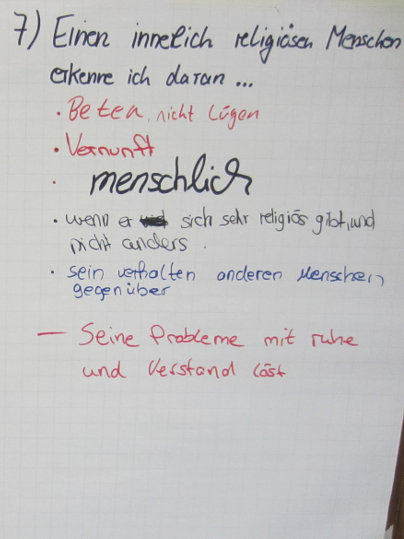 7) Einen innerlich religiösen Menschen
erkenne ich daran ...
• Beten, nicht Lügen
• Vernunft
• menschlich
• wenn er sich sehr religiös gibt, und
nicht anders.
• sein verhalten anderen Menschen
gegenüber
— Seine Probleme mit ruhe
und Verstand löst